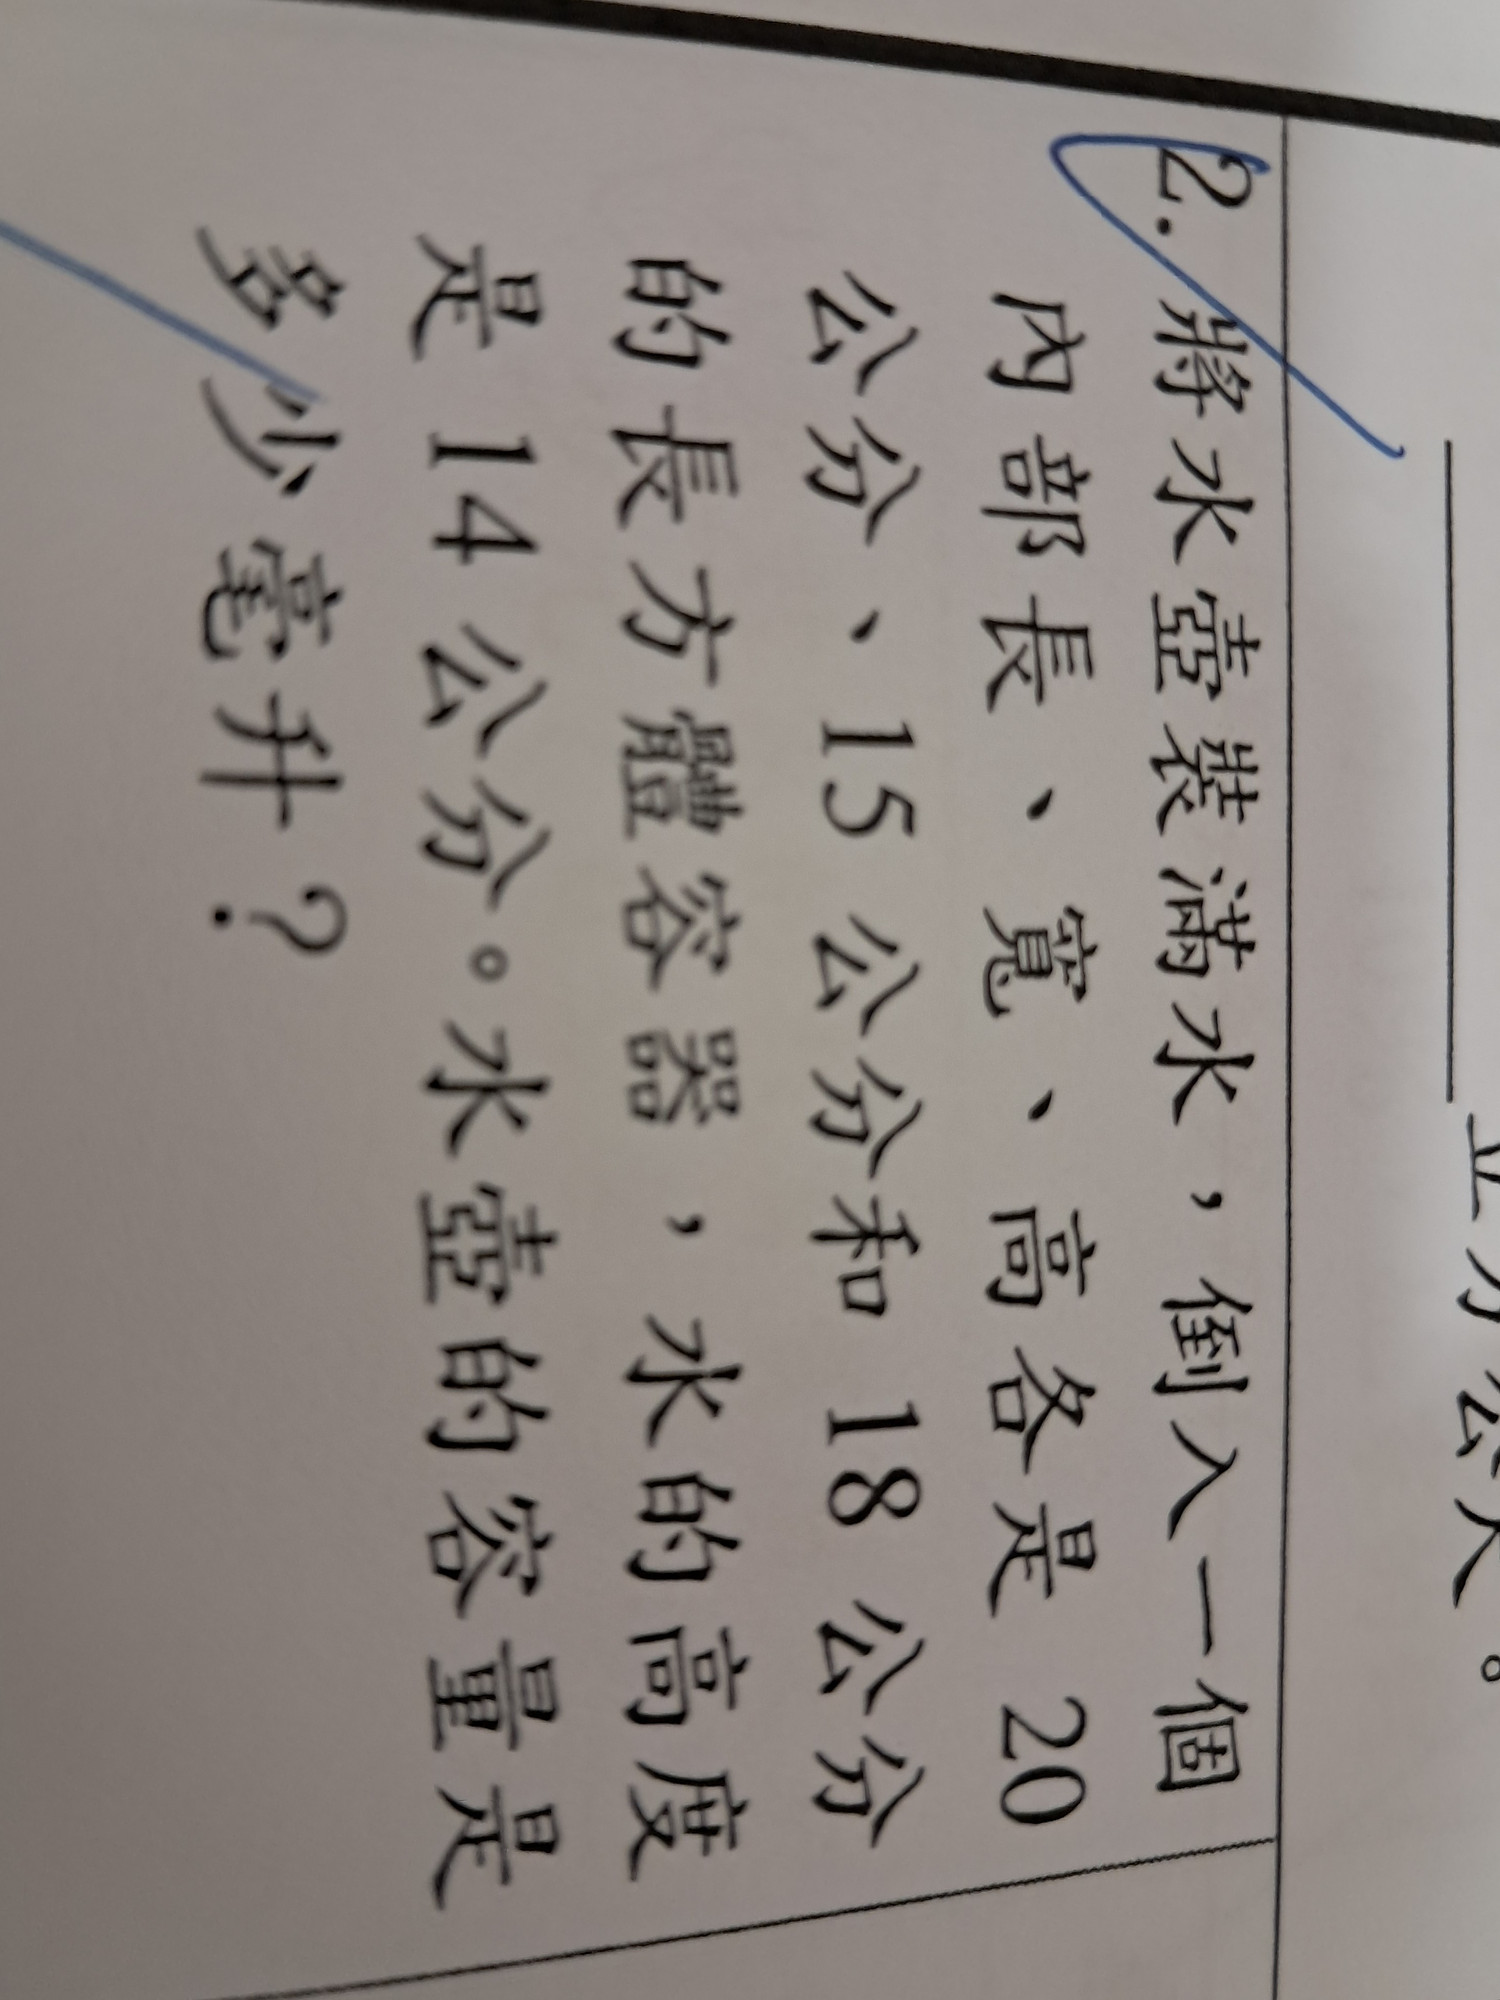 立方公尺。
2. 將水壺裝滿水，倒入一個
內部長、寬、高各是 20
公分、15 公分和 18 公分
的長方體容器，水的高度
是 14 公分。水壺的容量是
多少毫升？